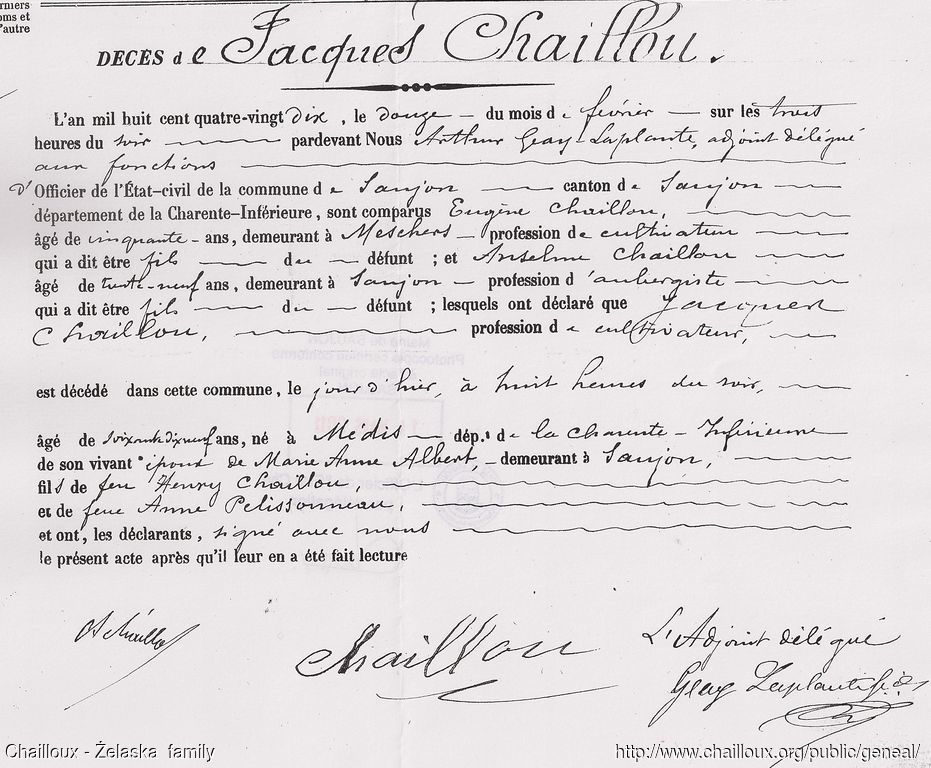 rniers
oms et
l'autre
DÉCÈS de Jacques Chaillou.
L'an mil huit cent quatre-vingt dix, le douze du mois de février sur les trois
heures du soir pardevant Nous Arthur Geay-Laplante, adjoint délégué
aux fonctions
d'Officier de l'État-civil de la commune de Saujon canton de Saujon
département de la Charente-Inférieure, sont comparus Eugène Chaillou,
âgé de cinquante ans, demeurant à Meschers profession de cultivateur
qui a dit être fils du défunt ; et Anselme Chaillou
âgé de trente-neuf ans, demeurant à Saujon profession d'aubergiste
qui a dit être fils du défunt ; lesquels ont déclaré que Jacques
Chaillou, profession de cultivateur,
est décédé dans cette commune, le jour d'hier, à huit heures du soir,
âgé de soixante dix neuf ans, né à Médis dép.t de la Charente-Inférieure
de son vivant époux de Marie Anne Albert, demeurant à Saujon,
fils de feu Henry Chaillou,
et de feue Anne Pelissonneau,
et ont, les déclarants, signé avec nous
le présent acte après qu'il leur en a été fait lecture
Chaillou
L'Adjoint délégué
Geay Laplante
Chailloux - Želaska family
http://www.chailloux.org/public/geneal/